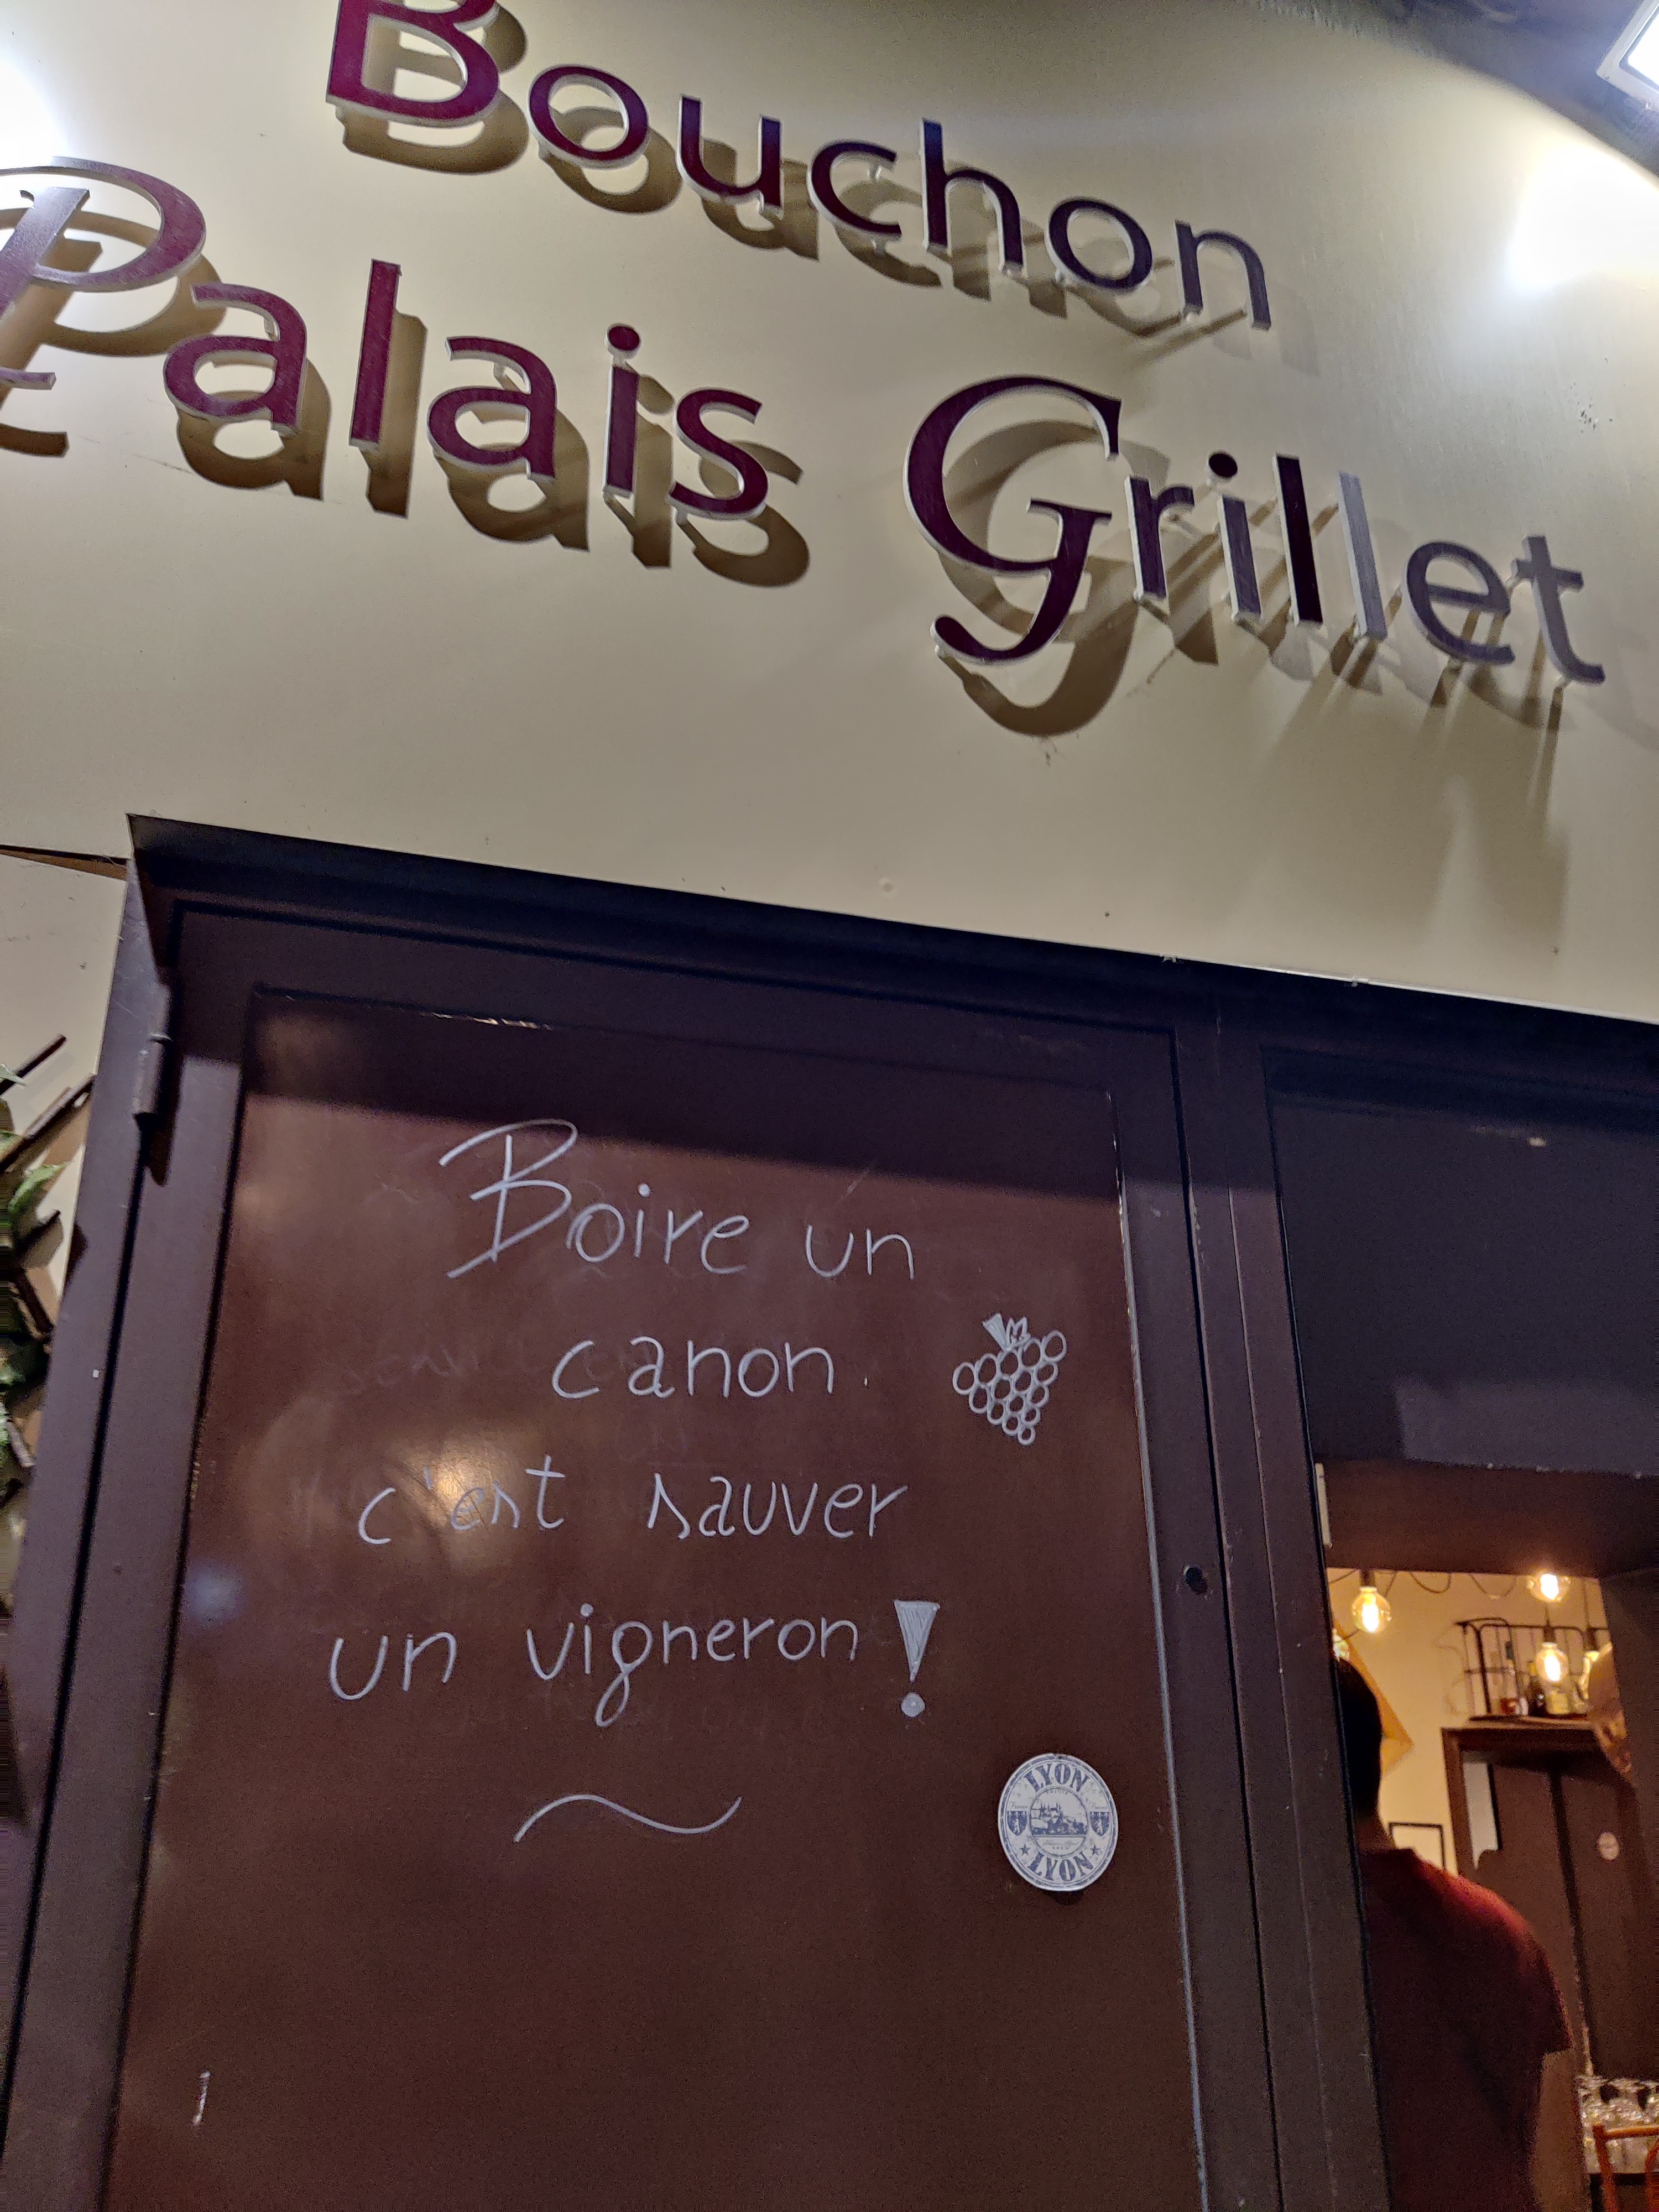 Bouchon
Palais Grillet
Boire un
canon
c'est sauver
un vigneron !
LYON
LYON